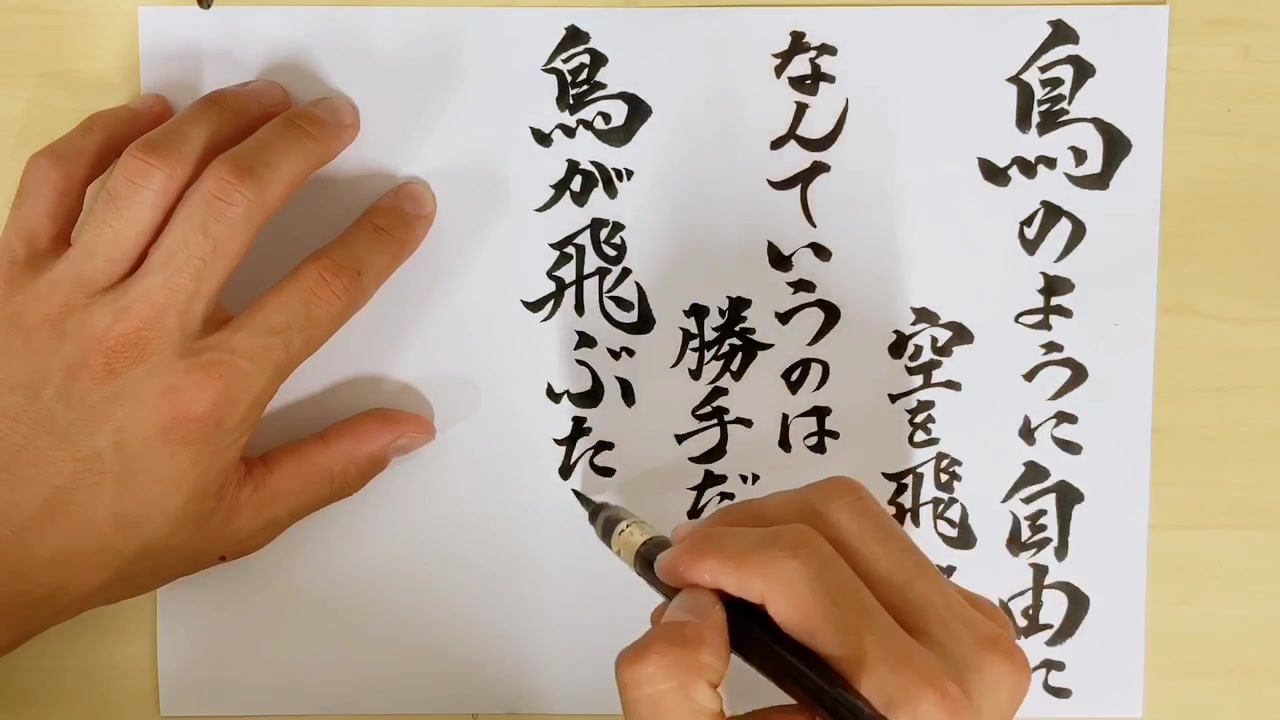 鳥のように自由に
空を飛
なんていうのは
勝手だ
鳥が飛ぶた